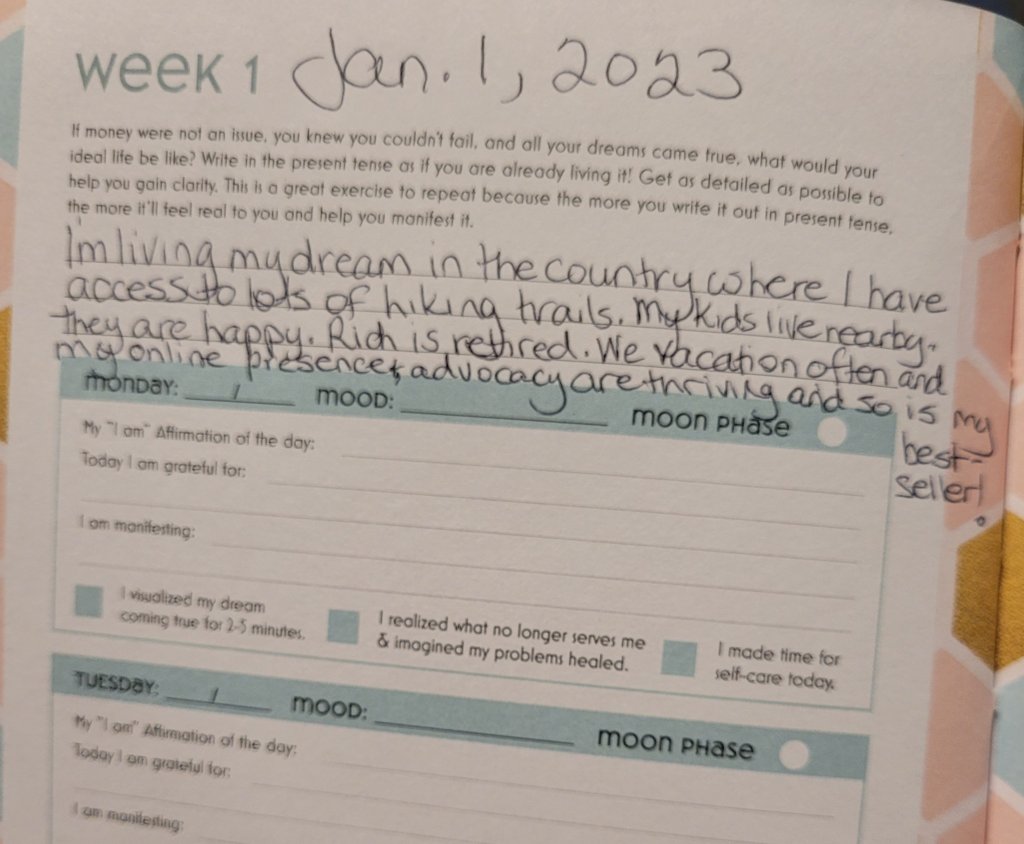 WEEK 1 Jan. 1, 2023
If money were not an issue, you knew you couldn't fail, and all your dreams came true, what would your
ideal life be like? Write in the present tense as if you are already living it! Get as detailed as possible to
help you gain clarity. This is a great exercise to repeat because the more you write it out in present tense,
the more it'll feel real to you and help you manifest it.
I'm living my dream in the country where I have
access to lots of hiking trails. My kids live nearby.
They are happy. Rich is retired. We vacation often and
my online presence & advocacy are thriving and so is my
best-
seller!
MONDAY: / MOOD: MOON PHASE
My "I am" Affirmation of the day:
Today I am grateful for:
I am manifesting:
I visualized my dream
coming true for 2-5 minutes.
I realized what no longer serves me
& imagined my problems healed.
I made time for
self-care today.
TUESDAY: / MOOD: MOON PHASE
My "I am" Affirmation of the day:
Today I am grateful for:
I am manifesting: